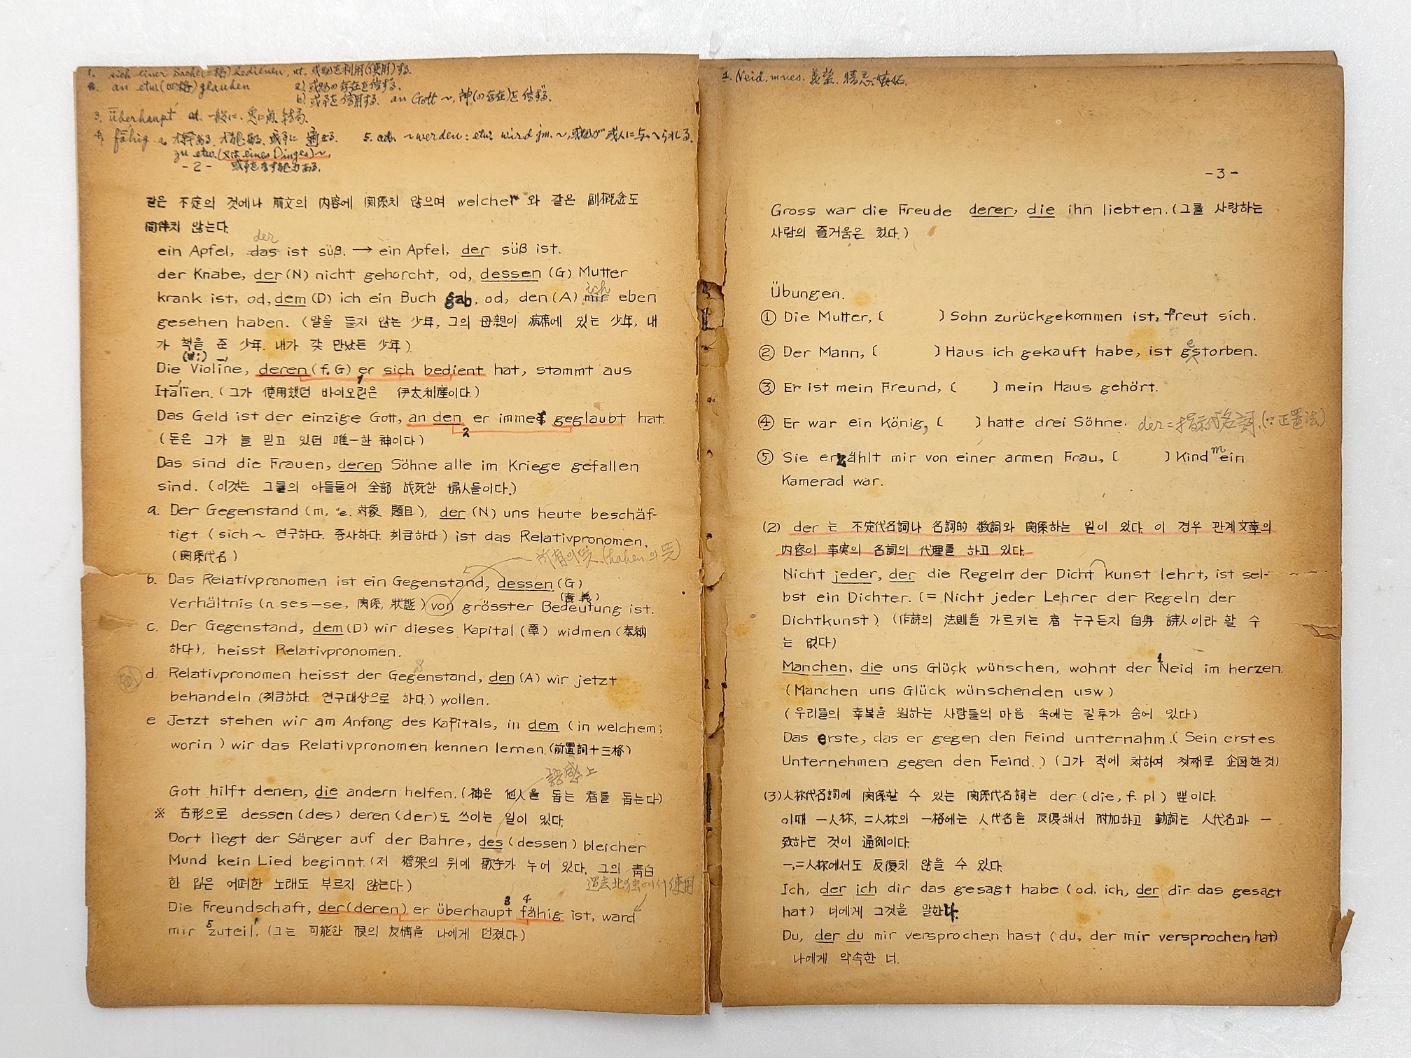 1. sich einer Sache(二格) bedienen, vt. 或物を利用(使用)する.
an etw(四格) glauben a) 或物の存在を信ずる.
b) 或事を信用する. an Gott ~, 神(の存在)を信ずる.
3. überhaupt at. 一般に.
4. fähig a. 才能ある, 或事に適する. 5. adv. ~werden: etw. wird jm. ~, 或物が或人に与へられる.
zu etw.(又は eines Dinges) ~
- 2 - 或事を為す能力ある.
같은 不定의 것에나 前文의 內容에 関係치 않으며 welcher 와 같은 副概念도
同伴치 않는다.
der
ein Apfel, das ist süß. → ein Apfel, der süß ist.
der Knabe, der (N) nicht gehorcht, od, dessen (G) Mutter
krank ist, od, dem (D) ich ein Buch gab, od, den (A) mir eben
ich
gesehen haben. (말을 듣지 않는 少年, 그의 母親이 病席에 있는 少年, 내
가 책을 준 少年. 내가 갖 만났든 少年)
Die Violine, deren (f, G) er sich bedient hat, stammt aus
Italien. (그가 使用했던 바이오린은 伊太利産이다.)
Das Geld ist der einzige Gott, an den er immer geglaubt hat.
(돈은 그가 늘 믿고 있던 唯一한 神이다)
Das sind die Frauen, deren Söhne alle im Kriege gefallen
sind. (이것는 그들의 아들들이 全部 战死한 婦人들이다.)
a. Der Gegenstand (m, -e. 対象 題目), der (N) uns heute beschäf-
tigt (sich ~ 연구하다. 종사하다. 취급하다) ist das Relativpronomen.
(関係代名)
b. Das Relativpronomen ist ein Gegenstand, dessen (G)
(意義)
Verhältnis (n ses-se, 関係, 狀態) von grösster Bedeutung ist.
c. Der Gegenstand, dem (D) wir dieses Kapital (章) widmen (奉納
하다), heisst Relativpronomen.
d. Relativpronomen heisst der Gegenstand, den (A) wir jetzt
behandeln (취급하다. 연구대상으로 하다) wollen.
e Jetzt stehen wir am Anfong des Kapitals, in dem (in welchem;
worin) wir das Relativpronomen kennen lernen (前置詞十三格)
Gott hilft denen, die andern helfen. (神은 他人을 돕는 者를 돕는다)
※ 古形으로 dessen (des) deren (der)도 쓰이는 일이 있다.
Dort liegt der Sänger auf der Bahre, des (dessen) bleicher
Mund kein Lied beginnt. (저 棺架의 뒤에 歌手가 누어 있다, 그의 靑白
한 입은 어떠한 노래도 부르지 않는다.)
Die Freundschaft, der (deren) er überhaupt fähig ist, ward
mir zuteil. (그는 可能한 限의 友情을 나에게 던졌다.)
1. Neid, m
- 3 -
Gross war die Freude derer, die ihn liebten. (그를 사랑하는
사람의 즐거움은 컸다.)
Übungen.
① Die Mutter, ( ) Sohn zurückgekommen ist, freut sich.
② Der Mann, ( ) Haus ich gekauft habe, ist gestorben.
③ Er ist mein Freund, ( ) mein Haus gehört.
④ Er war ein König, ( ) hatte drei Söhne. der = 指示代名詞. (∵正置法)
⑤ Sie erzählt mir von einer armen Frau, ( ) Kind mein
Kamerad war.
(2) der 는 不定代名詞나 名詞的 数詞와 関係하는 일이 있다. 이 경우 관계文章의
内容이 事実의 名詞의 代理를 하고 있다.
Nicht jeder, der die Regeln der Dicht kunst lehrt, ist sel-
bst ein Dichter. (= Nicht jeder Lehrer der Regeln der
Dichtkunst) (作詩의 法則을 가르키는 者 누구든지 自身 詩人이라 할 수
는 없다)
Manchen, die uns Glück wünschen, wohnt der Neid im herzen.
(Manchen uns Glück wünschenden usw)
(우리들의 幸福을 원하는 사람들의 마음 속에는 질투가 숨어 있다)
Das erste, das er gegen den Feind unternahm. (Sein erstes
Unternehmen gegen den Feind.) (그가 적에 対하여 첫째로 企図한것)
(3) 人称代名詞에 関係할 수 있는 関係代名詞는 der (die, f. pl) 뿐이다.
이때 一人称, 二人称의 一格에는 人代名을 反復해서 附加하고 動詞는 人代名과 一
致하는 것이 通例이다.
一,二人称에서도 反復치 않을 수 있다.
Ich, der ich dir das gesagt habe (od. ich, der dir das gesagt
hat) 너에게 그것을 말한나.
Du, der du mir versprochen hast (du, der mir versprochen hat)
나에게 약속한 너.